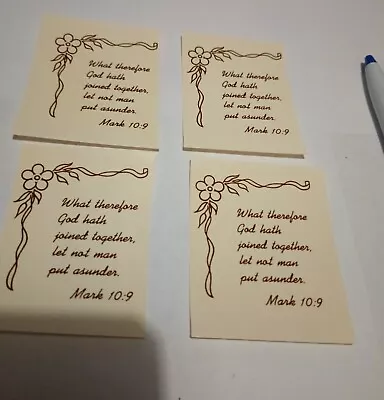 What therefore
God hath
joined together,
let not man
put asunder.
Mark 10:9
What therefore
God hath
joined together,
let not man
put asunder.
Mark 10:9
What therefore
God hath
joined together,
let not man
put asunder.
Mark 10:9
What therefore
God hath
joined together,
let not man
put asunder.
Mark 10:9